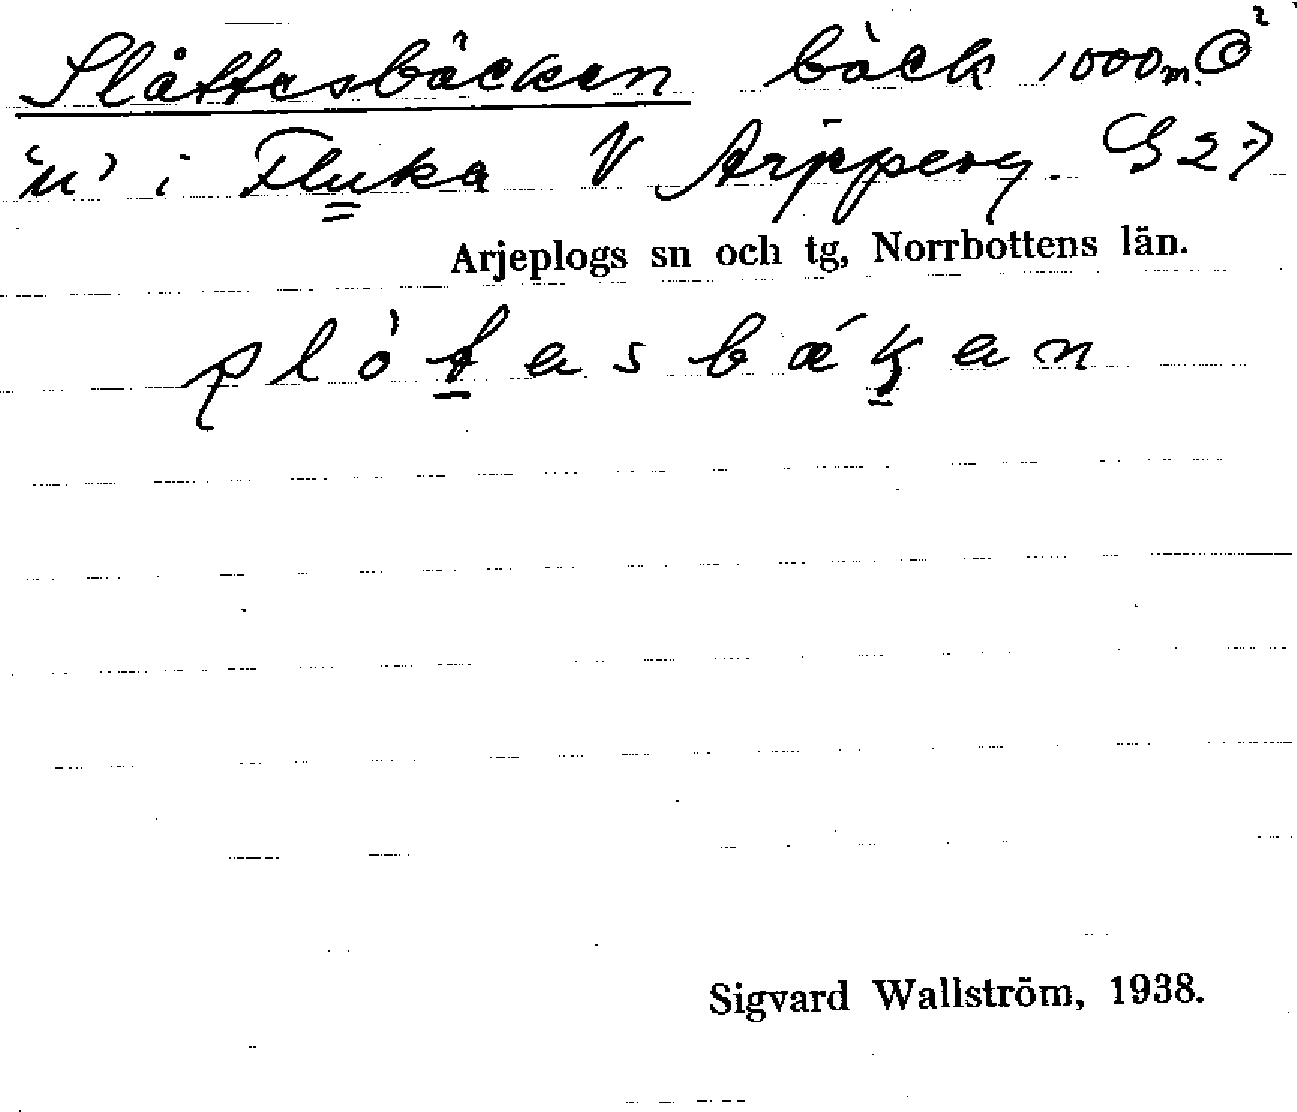 Slåttesbäcken bäck 1000m
"u" i Fluka V Arjpperg. G 27
Arjeplogs sn och tg, Norrbottens län.
slòtasbǽkan
Sigvard Wallström, 1938.